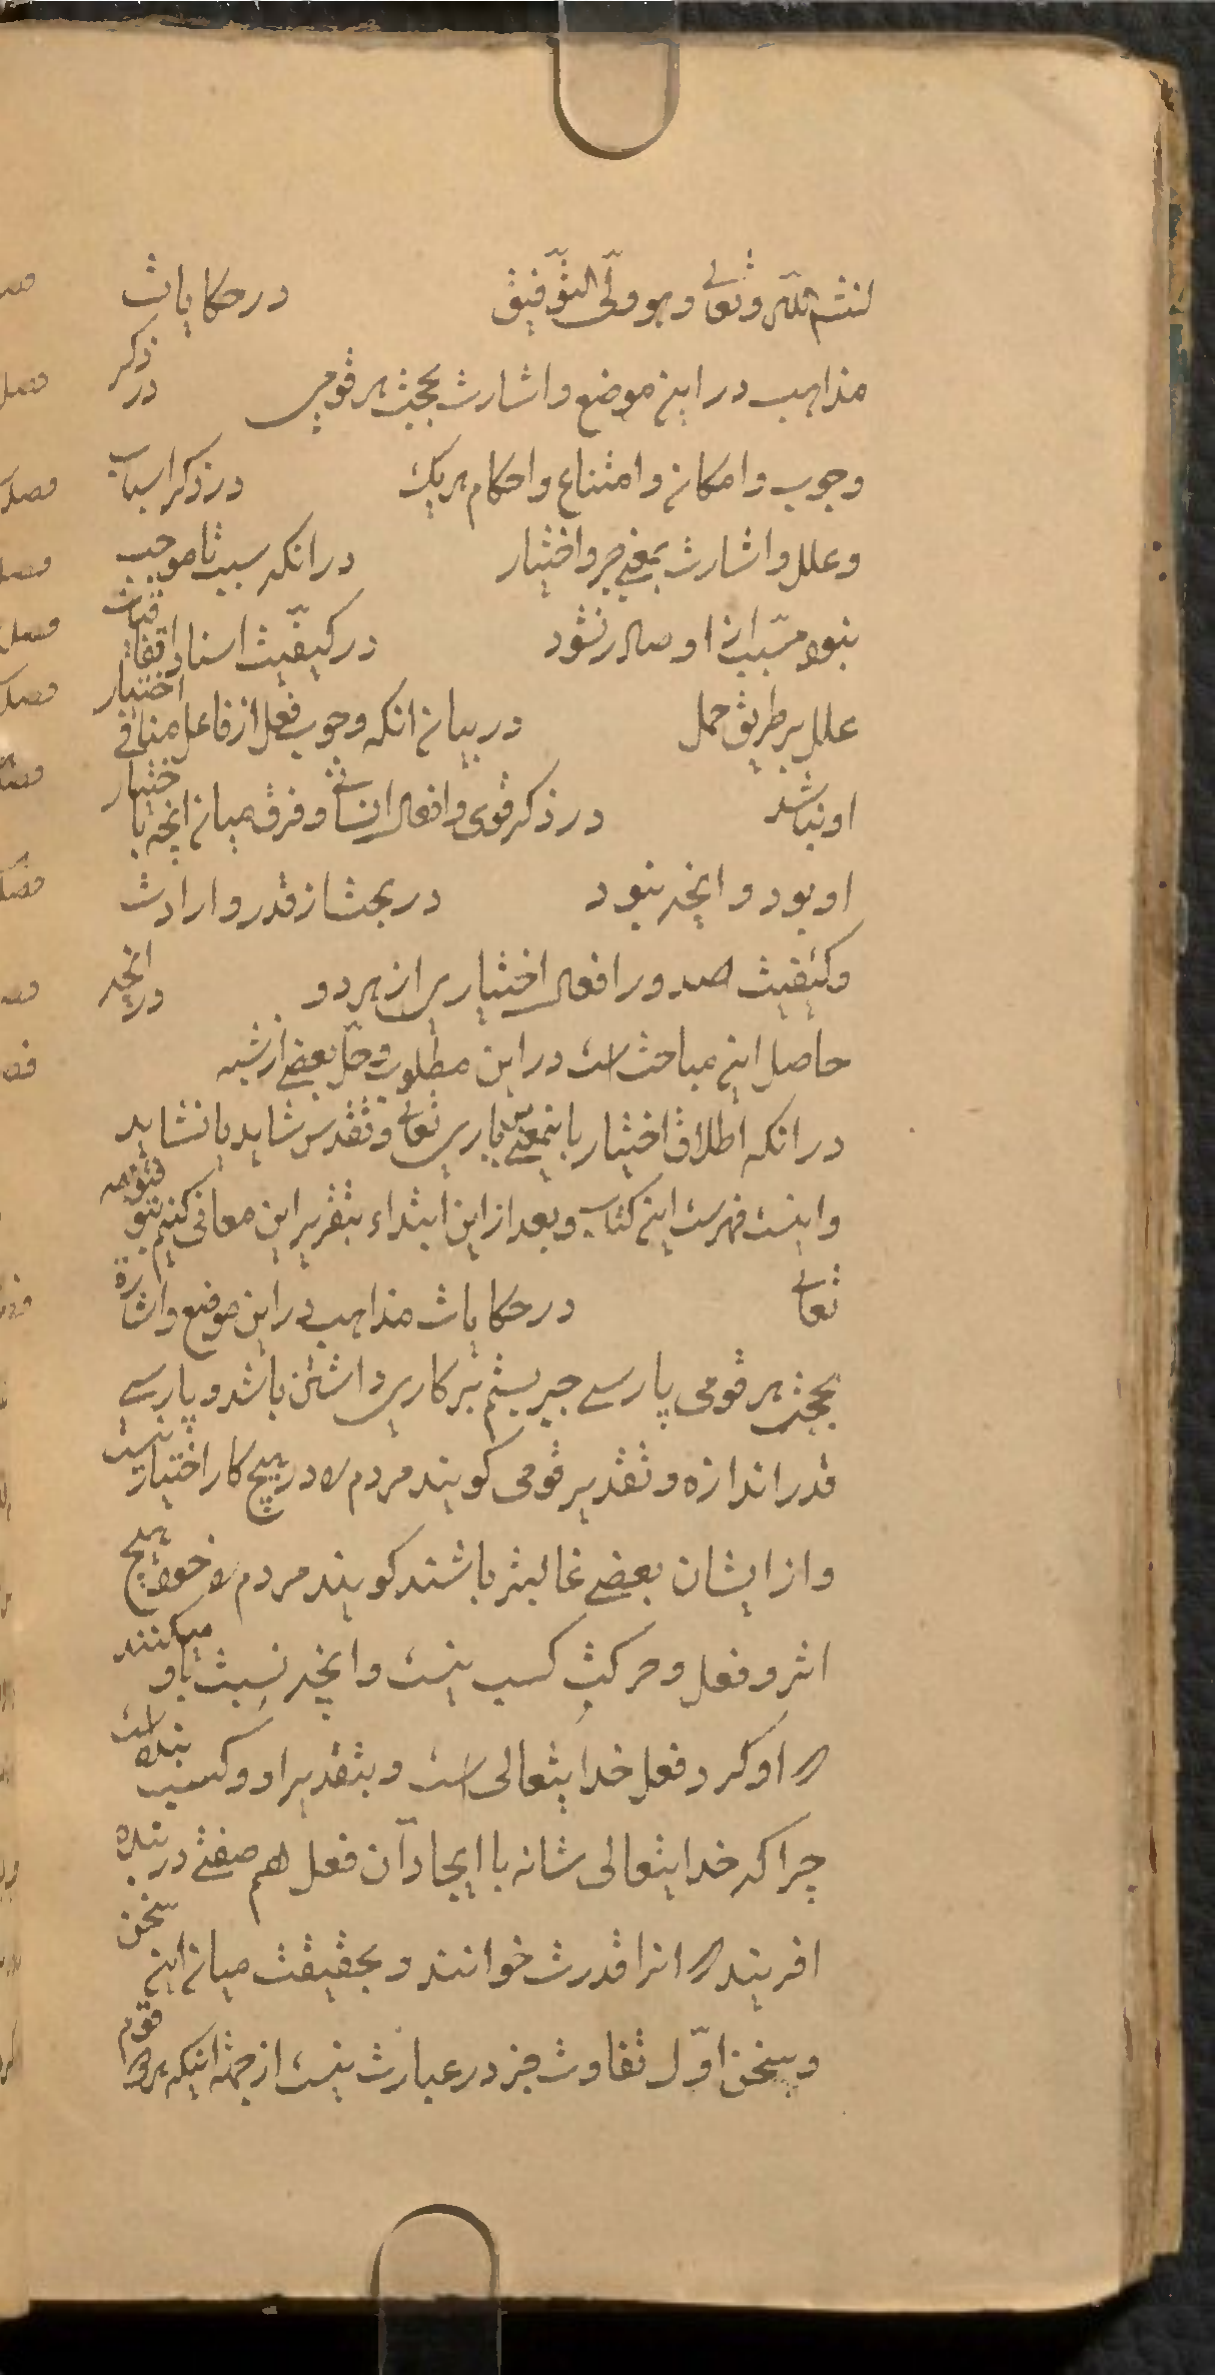 انشاء الله وتعالی وهو ولّی التّوفیق در حکایات
مذاهب در این موضع واشارت بحجت هر قومی در ذکر
وجوب و امکان و امتناع واحکام هر یک در ذکر اسباب
وعلل واشارت بمعنی جبر واختیار در انکه سبب تا موجب
نبود مسبب از او صادر نشود در کیفیت اسناد اتفاقیات
علل بر طریق جمل در بیان انکه وجوب فعل از فاعل منافی اختیار
او نباشد در ذکر قوی وافعال انسانی وفرق میان انچه باختیار
او بود و انچه نبود در بحث از قدر و ارادت
وکیفیت صدور افعال اختیاری از هر دو در انچه
حاصل این مباحث است در این مطلوب وحلّ بعضی از شبه
در انکه اطلاق اختیار باینمعنی بر باری تعالی و تقدس شاید یا نشاید
واینست فهرست این کتاب و بعد از این ابتداء بتقریر این معانی کنیم بتوفیقه
تعالی در حکایات مذاهب در این موضع واشارة
بحجت هر قومی پارسی جبر بستم بر کاری داشتن باشد و پارسی
قدر اندازه و تقدیر قومی کویند مردم را در هیچ کار اختیار نیست
واز ایشان بعضی غالیتر باشند کویند مردم را خود هیچ
اثر و فعل و حرکت کسب نیست وانچه نسبت باو میکنند
که او کرد فعل خدایتعالی است و بتقدیر او و کسب بنده است
چرا که خدایتعالی شانه با ایجاد آن فعل هم صفتی در بنده
افریند که انرا قدرت خوانند و بحقیقت میان این سخن
و سخن اوّل تفاوت جز در عبارت نیست از جهة اینکه هر دو قوم